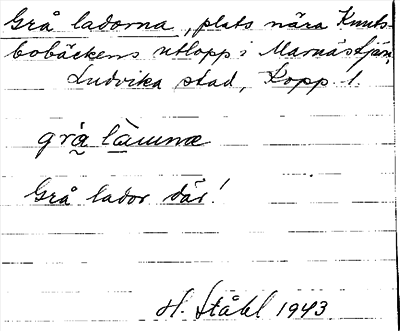 Grå ladorna, plats nära Knuts-
bobäckens utlopp i Marnästjärn,
Ludvika stad, Kopp l.
grå̰ là̱unnæ
Grå lador där!
H. Ståhl 1943